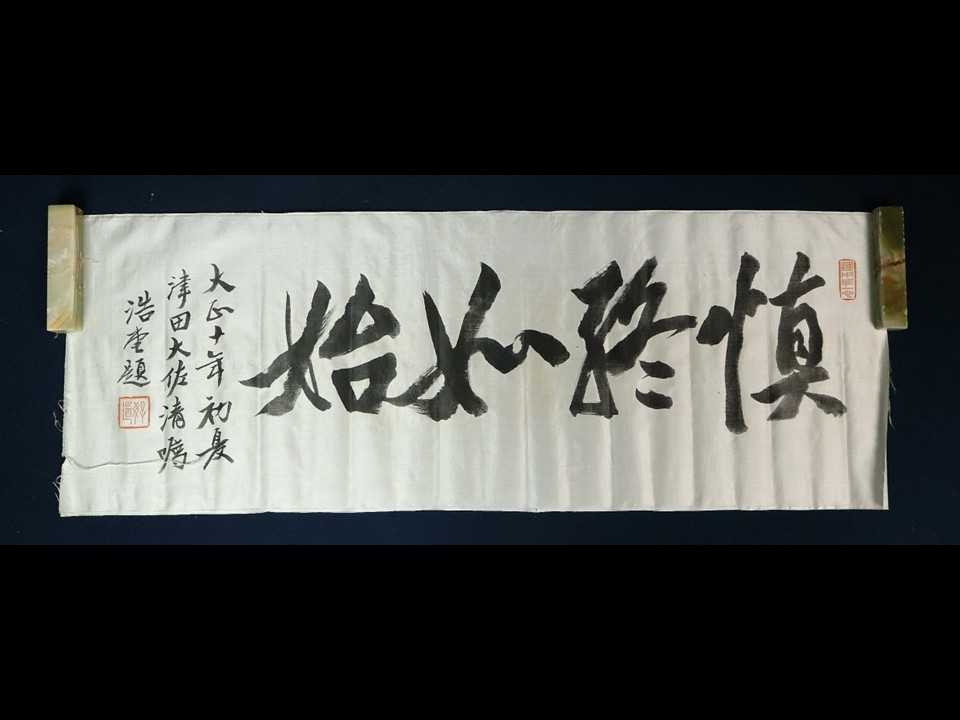 慎終如始
大正十年初夏
津田大佐清嘱
浩堂題